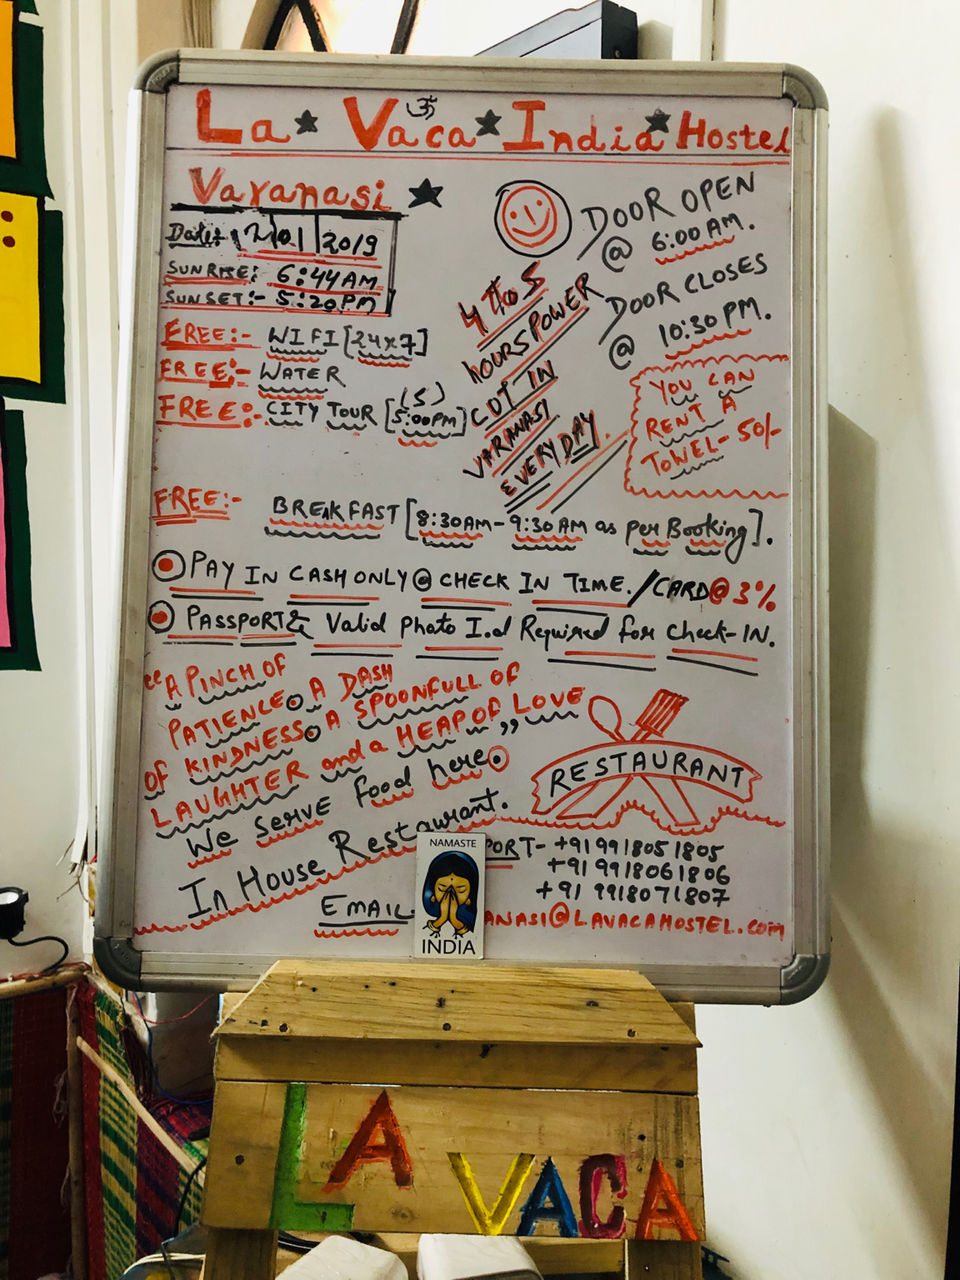 La ★ Vaca ★ India ★ Hostel
ॐ
Varanasi ★
Date: 01 | 2019
SUNRISE: 6:44AM
SUNSET:- 5:20PM
FREE:- WIFI [24x7]
FREE:- WATER
FREE:- CITY TOUR [5:00PM]
(5)
4 to 5
HOURS POWER
CUT IN
VARANASI
EVERYDAY.
DOOR OPEN
@ 6:00 AM.
DOOR CLOSES
@ 10:30 PM.
YOU CAN
RENT A
TOWEL- 50/-
FREE:- BREAKFAST [8:30AM-9:30AM as per Booking].
PAY IN CASH ONLY @ CHECK IN TIME./CARD@3%
PASSPORT & Valid Photo I.d Required for Check-IN.
"A PINCH OF
PATIENCE. A DASH
OF KINDNESS. A SPOONFULL OF
LAUGHTER and a HEAP OF LOVE"
We Serve Food here.
In House Restaurant.
RESTAURANT
PORT- +91 9918051805
+91 9918061806
+91 9918071807
EMAIL ANASI@LAVACAHOSTEL.COM
NAMASTE
INDIA
LA VACA